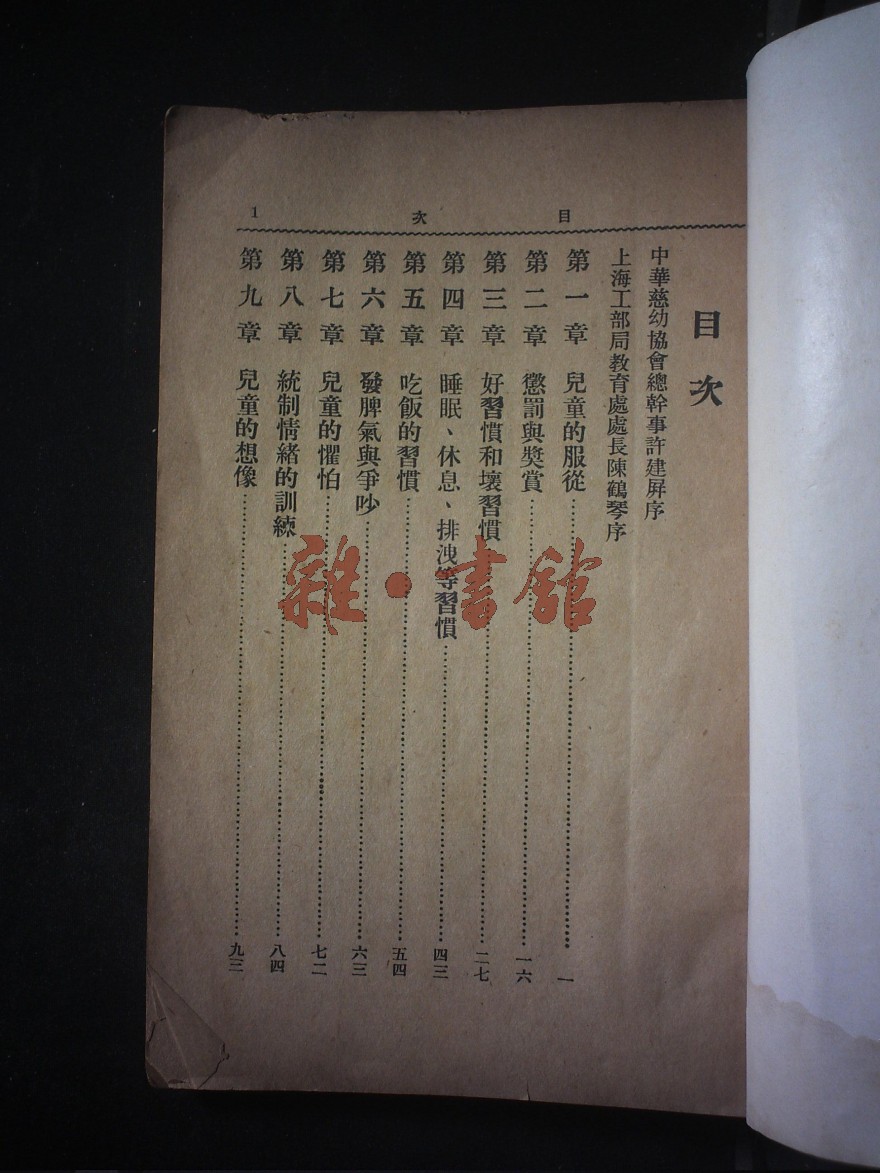 目次
1
目次
中華慈幼協會總幹事許建屏序
上海工部局教育處處長陳鶴琴序
第一章 兒童的服從……一
第二章 懲罰與獎賞……一六
第三章 好習慣和壞習慣……二七
第四章 睡眠、休息、排洩等習慣……四三
第五章 吃飯的習慣……五四
第六章 發脾氣與爭吵……六三
第七章 兒童的懼怕……七二
第八章 統制情緒的訓練……八四
第九章 兒童的想像……九三
雜·書館